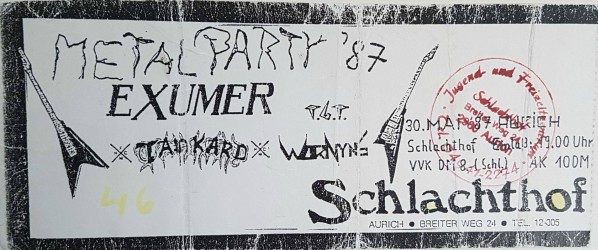 METAL PARTY '87
EXUMER
T.B.T
※ TANKARD ※
30. MAI '87 AURICH
Schlachthof Einlaß 19.00 Uhr
VVK DM 8,- (Schl.) - AK 10DM
46
Jugend- und
Schlachthof
Breiter Weg 24
2960 Aurich
Schlachthof
AURICH • BREITER WEG 24 • TEL. 12-005